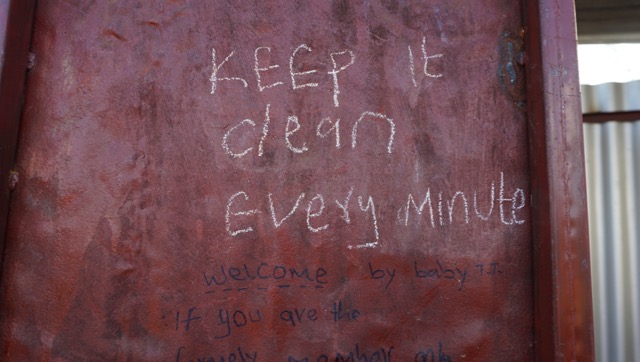 KEEP it
clean
EVery Minute
WELCOME by baby T.T.
IF you are the